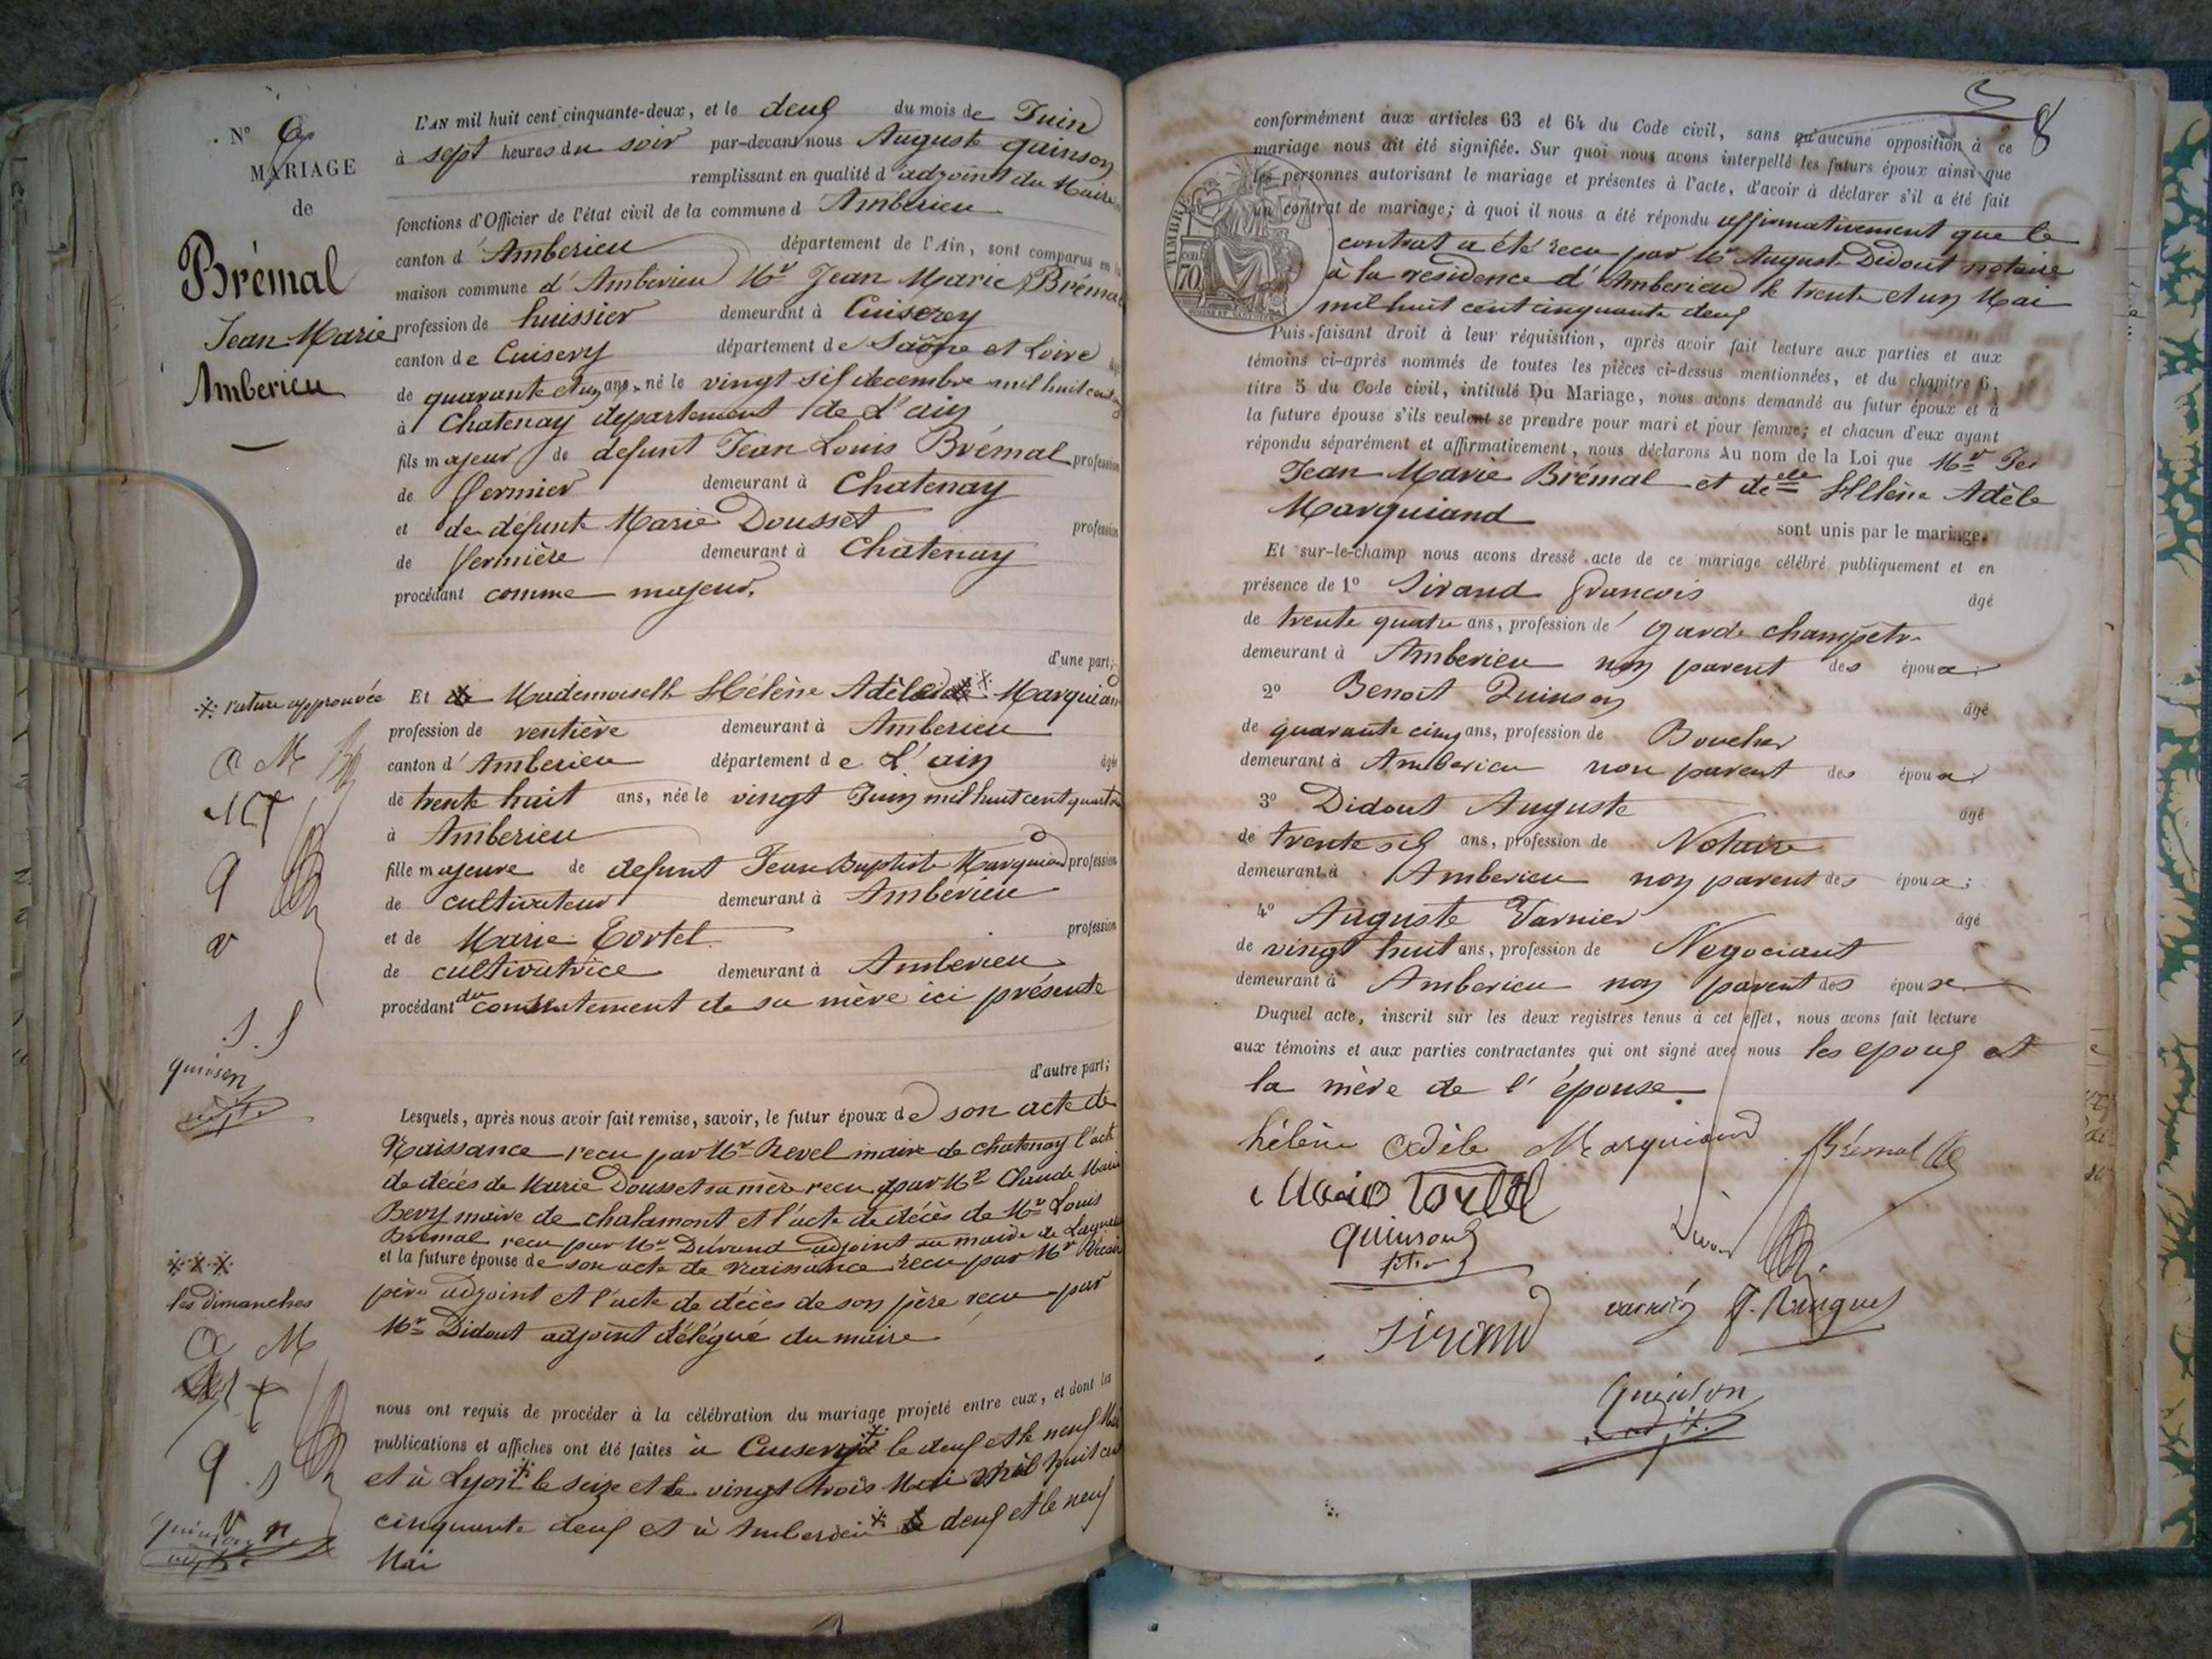 N° 6
MARIAGE
de
Brémal
Jean Marie
Amberieu
L'AN mil huit cent cinquante-deux, et le deux du mois de Juin
à sept heures du soir par-devant nous Auguste quinson
remplissant en qualité d'adjoint du Maire
fonctions d'Officier de l'état civil de la commune d Amberieu
canton d'Amberieu département de l'Ain, sont comparus en la
maison commune d'Amberieu Mr Jean Marie Brémal
profession de huissier demeurant à Cuiserey
canton de Cuisery département de Saône et Loire
de quarante et un ans, né le vingt six decembre mil huit cent
à Chatenay departement de L'ain
fils majeur de defunt Jean Louis Brémal profession
de fermier demeurant à Chatenay
et de défunte Marie Dousset profession
de fermière demeurant à Chatenay
procédant comme majeur.
d'une part;
※ rature approuvée
Et Mademoiselle Hélène Adèle Marquian
profession de rentière demeurant à Amberieu
canton d'Amberieu département de L'ain âgée
de trente huit ans, née le vingt Juin mil huit cent quatorze
à Amberieu
fille majeure de defunt Jean Baptiste Marquiand profession
de cultivateur demeurant à Amberieu
et de Marie Tortel profession
de cultivatrice demeurant à Amberieu
procédant du consentement de sa mère ici présente
quinson
d'autre part;
Lesquels, après nous avoir fait remise, savoir, le futur époux de son acte de
Naissance recu par Mr Revel maire de chatenay l'acte
de décés de Marie Dousset sa mère recu par Mr Claude Marie
Bevy maire de chalamont et l'acte de décès de Mr Louis
Brémal recu par Mr Durand adjoint au maire de Lagnieu
et la future épouse de son acte de naissance recu par Mr
père adjoint et l'acte de décès de son père recu par
Mr Didout adjoint délégué du maire
※ ※ ※
les dimanches
nous ont requis de procéder à la célébration du mariage projeté entre eux, et dont les
publications et affiches ont été faites à Cuisery ※ le deux et le neuf Mai
et à Lyon ※ le seize et le vingt trois Mai mil huit cent
cinquante deux et à Amberieu ※ le deux et le neuf
Mai
8
conformément aux articles 63 et 64 du Code civil, sans qu'aucune opposition à ce
mariage nous ait été signifiée. Sur quoi nous avons interpellé les futurs époux ainsi que
les personnes autorisant le mariage et présentes à l'acte, d'avoir à déclarer s'il a été fait
un contrat de mariage; à quoi il nous a été répondu affirmativement que le
contrat a été recu par Mr Auguste Didout notaire
à la résidence d'Amberieu le trente et un Mai
mil huit cent cinquante deux
TIMBRE
70
Puis faisant droit à leur réquisition, après avoir fait lecture aux parties et aux
témoins ci-après nommés de toutes les pièces ci-dessus mentionnées, et du chapitre 6,
titre 5 du Code civil, intitulé Du Mariage, nous avons demandé au futur époux et à
la future épouse s'ils veulent se prendre pour mari et pour femme; et chacun d'eux ayant
répondu séparément et affirmativement, nous déclarons Au nom de la Loi que Mr
Jean Marie Brémal et delle Hélène Adèle
Marquiand
sont unis par le mariage.
Et sur-le-champ nous avons dressé acte de ce mariage célébré publiquement et en
présence de 1° Sirand François âgé
de trente quatre ans, profession de garde champêtre
demeurant à Amberieu non parent des époux;
2° Benoit Quinson âgé
de quarante cinq ans, profession de Boucher
demeurant à Amberieu non parent des époux;
3° Didout Auguste âgé
de trente six ans, profession de Notaire
demeurant à Amberieu non parent des époux;
4° Auguste Varnier âgé
de vingt huit ans, profession de Negociant
demeurant à Amberieu non parent des époux
Duquel acte, inscrit sur les deux registres tenus à cet effet, nous avons fait lecture
aux témoins et aux parties contractantes qui ont signé avec nous les epoux et
la mère de l'épouse.
hélène adèle Marquiand Brémal
Marie Tortel
quinson
Sirand varnier
quinson